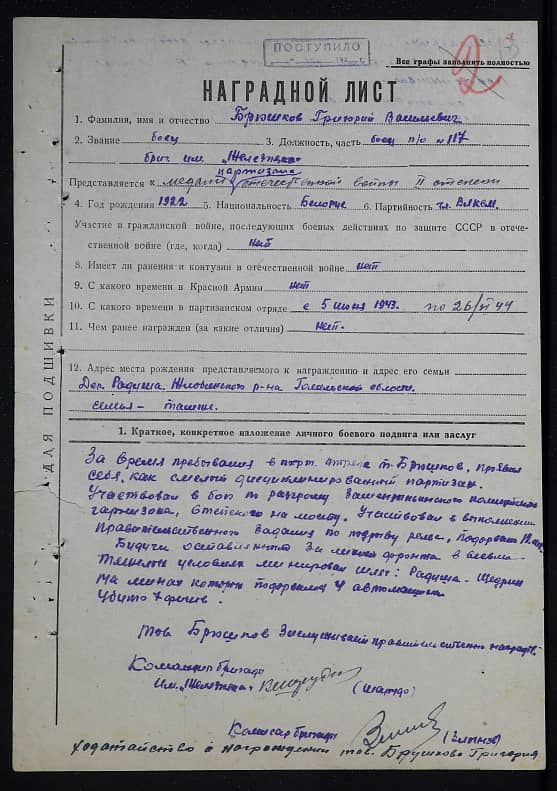 ПОСТУПИЛО
2
Все графы заполнить полностью
НАГРАДНОЙ ЛИСТ
1. Фамилия, имя и отчество Брюшков Григорий Васильевич
2. Звание боец 3. Должность, часть боец п/о № 117
бриг им. „Железняка"
партизана
Представляется к медали отечественной войны II степени
4. Год рождения 1922 5. Национальность Белорус 6. Партийность чл. ВЛКСМ.
Участие в гражданской войне, последующих боевых действиях по защите СССР в отече-
ственной войне (где, когда) нет
8. Имеет ли ранения и контузии в отечественной войне нет
9. С какого времени в Красной Армии нет
10. С какого времени в партизанском отряде с 5 июня 1943. по 26/VI 44
11. Чем ранее награжден (за какие отличия) нет.
12. Адрес места рождения представляемого к награждению и адрес его семьи
Дер. Радуша Жлобинского р-на Гомельской области.
семья - тамже.
ДЛЯ ПОДШИВКИ
1. Краткое, конкретное изложение личного боевого подвига или заслуг
За время пребывания в парт. отряде т. Брюшков, проявил
себя, как смелый дисциплинированный партизан.
Участвовал в бою по разгрому полицейского
гарнизона, на мосту. Участвовал в выполнении
Правительственного задания по подрыву рельс, Подорвал
Будучи оставленным за линией фронта в весьма
тяжелых условиях минировал шлях: Радуша - Щедрин
На минах которых подорвались 4 автомашины
Убито 7 фрицев.
Тов Брюшков Заслуживает правительственной награды.
Командир бригады
Им. „Железняка" (Шарудо)
Комисар бригады
Ходатайство о награждении тов. Брушкова Григория